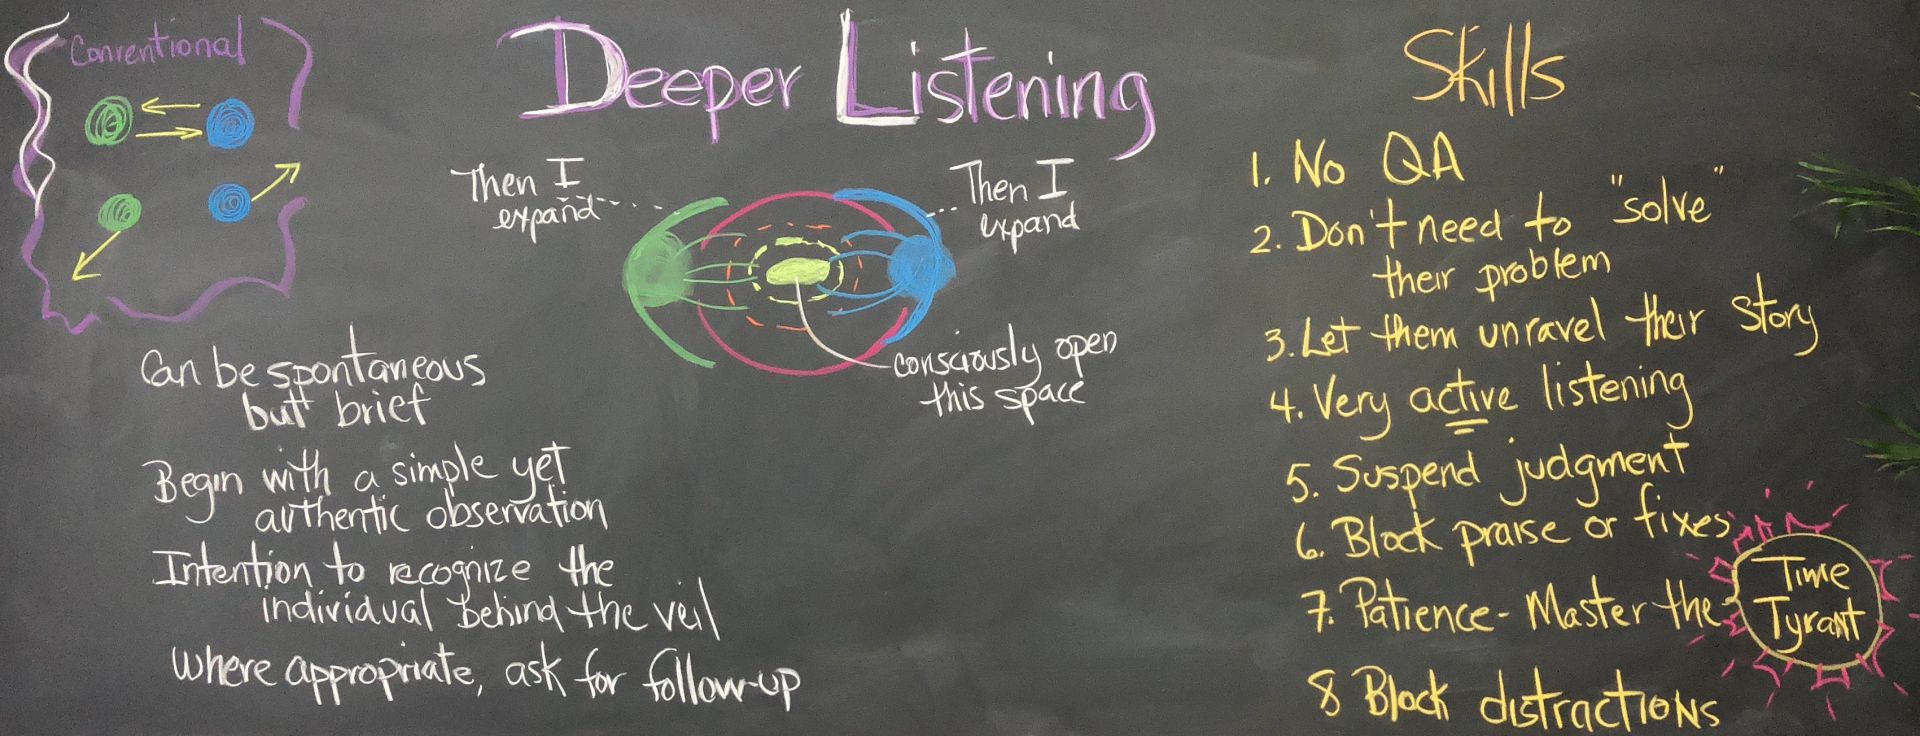 Conventional
Deeper Listening
Then I
expand
Then I
expand
consciously open
this space
Can be spontaneous
but brief
Begin with a simple yet
authentic observation
Intention to recognize the
individual behind the veil
where appropriate, ask for follow-up
Skills
1. No QA
2. Don't need to "solve"
their problem
3. Let them unravel their story
4. Very active listening
5. Suspend judgment
6. Block praise or fixes
7. Patience - Master the Time
Tyrant
8 Block distractions